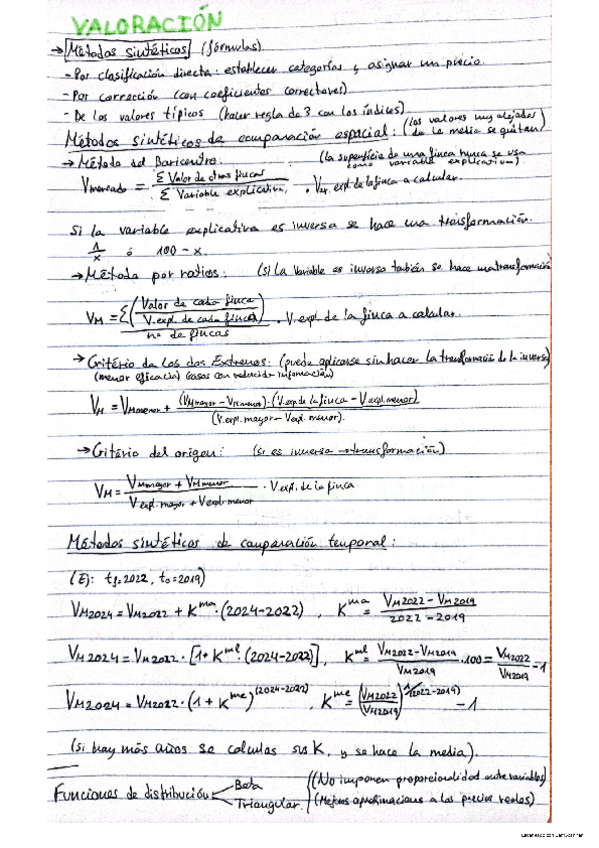 VALORACIÓN
→ Métodos sintéticos (fórmulas).
- Por clasificación directa: establecer categorías y asignar un precio.
- Por corrección (con coeficientes correctores)
- De los valores típicos (hacer regla de 3 con los índices)
Métodos sintéticos de comparación espacial: (los valores muy alejados de la media se quitan)
→ Método del Baricentro: (la superficie de una finca nunca se usa como variable explicativa)
Vmercado = Σ Valor de otras fincas / Σ Variable explicativa · V. expl. de la finca a calcular.
Si la variable explicativa es inversa se hace una transformación.
1/x ó 100 - x.
→ Método por ratios: (si la variable es inversa también se hace una transformación)
VM = Σ (Valor de cada finca / V. expl. de cada finca) / nº de fincas · V. expl. de la finca a calcular.
→ Critério de los dos Extremos: (puede aplicarse sin hacer la transformación de la inversa)
(menor eficacia) (casos con reducida información)
VM = VMmenor + (VMmayor - VMmenor) · (V. expl. de la finca - V. expl. menor) / (V. expl. mayor - V. expl. menor).
→ Critério del origen: (si es inversa → transformación)
VM = VMmayor + VMmenor / V expl. mayor + V expl. menor · V. expl. de la finca
Métodos sintéticos de comparación temporal:
(Ej: t1=2022, t0=2019)
VM2024 = VM2022 + K^ma · (2024-2022), K^ma = VM2022 - VM2019 / 2022 - 2019
VM2024 = VM2022 · [1 + K^ml · (2024-2022)], K^ml = VM2022 - VM2019 / VM2019 · 100 = VM2022 / VM2019 - 1
VM2024 = VM2022 · (1 + K^me)^(2024-2022), K^me = (VM2022 / VM2019)^1/(2022-2019) - 1
(Si hay más años se calculas sus K, y se hace la media).
Funciones de distribución
Beta (No imponen proporcionalidad entre variables)
Triangular. (Mejores aproximaciones a los precios reales)